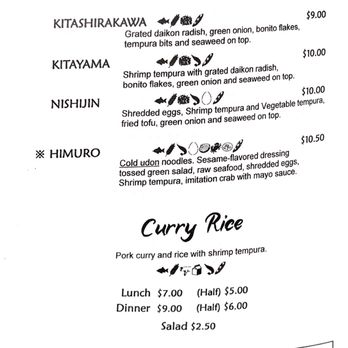 KITASHIRAKAWA $9.00
Grated daikon radish, green onion, bonito flakes,
tempura bits and seaweed on top.
KITAYAMA $10.00
Shrimp tempura with grated daikon radish,
bonito flakes, green onion and seaweed on top.
NISHIJIN $10.00
Shredded eggs, Shrimp tempura and Vegetable tempura,
fried tofu, green onion and seaweed on top.
※ HIMURO $10.50
Cold udon noodles. Sesame-flavored dressing
tossed green salad, raw seafood, shredded eggs,
Shrimp tempura, imitation crab with mayo sauce.
Curry Rice
Pork curry and rice with shrimp tempura.
Lunch $7.00 (Half) $5.00
Dinner $9.00 (Half) $6.00
Salad $2.50